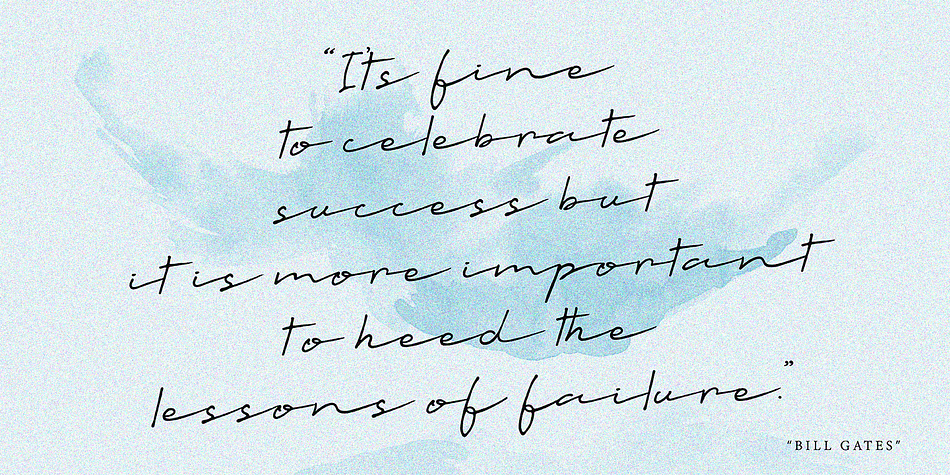 “It's fine
to celebrate
success but
it is more important
to heed the
lessons of failure.”
“BILL GATES”